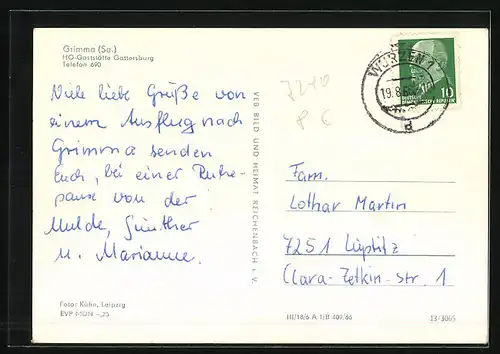 Grimma (Sa.)
HO-Gaststätte Gattersburg
Telefon 690
Viele liebe Grüße von
einem Ausflug nach
Grimma senden
Euch, bei einer Ruhe-
pause von der
Mulde, Günther
u. Marianne.
Foto: Kühn, Leipzig
EVP MDN -,25
VEB BILD UND HEIMAT REICHENBACH i. V.
III/18/6 A 1/B 409/66
WURZEN 1
19.8.6
d
10
7240
8 €
Fam.
Lothar Martin
7251 Lüptitz
Clara-Zetkin-Str. 1
13/3065